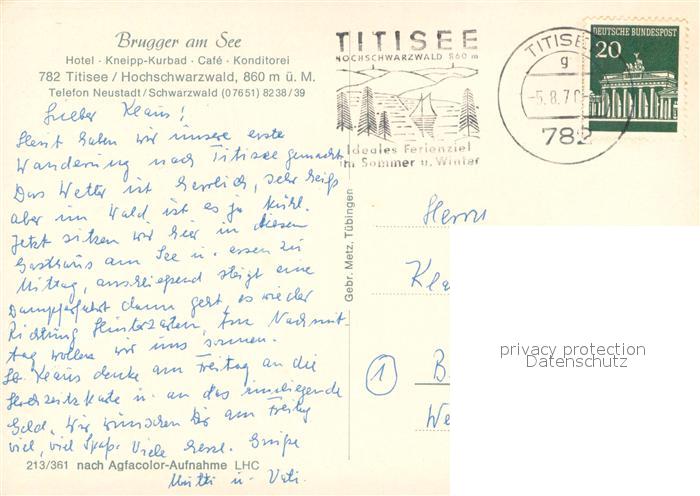 Brugger am See
Hotel · Kneipp-Kurbad · Café · Konditorei
782 Titisee / Hochschwarzwald, 860 m ü. M.
Telefon Neustadt / Schwarzwald (07651) 8238 / 39
Lieber Klaus!
Heut haben wir unsere erste
Wanderung nach Titisee gemacht.
Das Wetter ist herrlich, sehr heiß
aber im Wald ist es ja kühl.
Jetzt sitzen wir hier in diesem
Gasthaus am See u. essen zu
Mittag, anschließend steigt eine
Dampferfahrt dann geht es wieder
Richtung Hinterzarten, Am Nachmit
tag wollen wir uns sonnen.
Lb. Klaus denke am Freitag an die
Hochzeitskarte u. an das einliegende
Geld, Wir wünschen Dir am Freitag
viel, viel Spaß. Viele herzl. Grüße
Mutti u. Vati.
213/361 nach Agfacolor-Aufnahme LHC
Gebr. Metz, Tübingen
TITISEE
HOCHSCHWARZWALD 860 m
Ideales Ferienziel
im Sommer u. Winter
TITISEE
g
-5.8.70
782
DEUTSCHE BUNDESPOST
20
Herrn
Kla
① B
We
privacy protection
Datenschutz